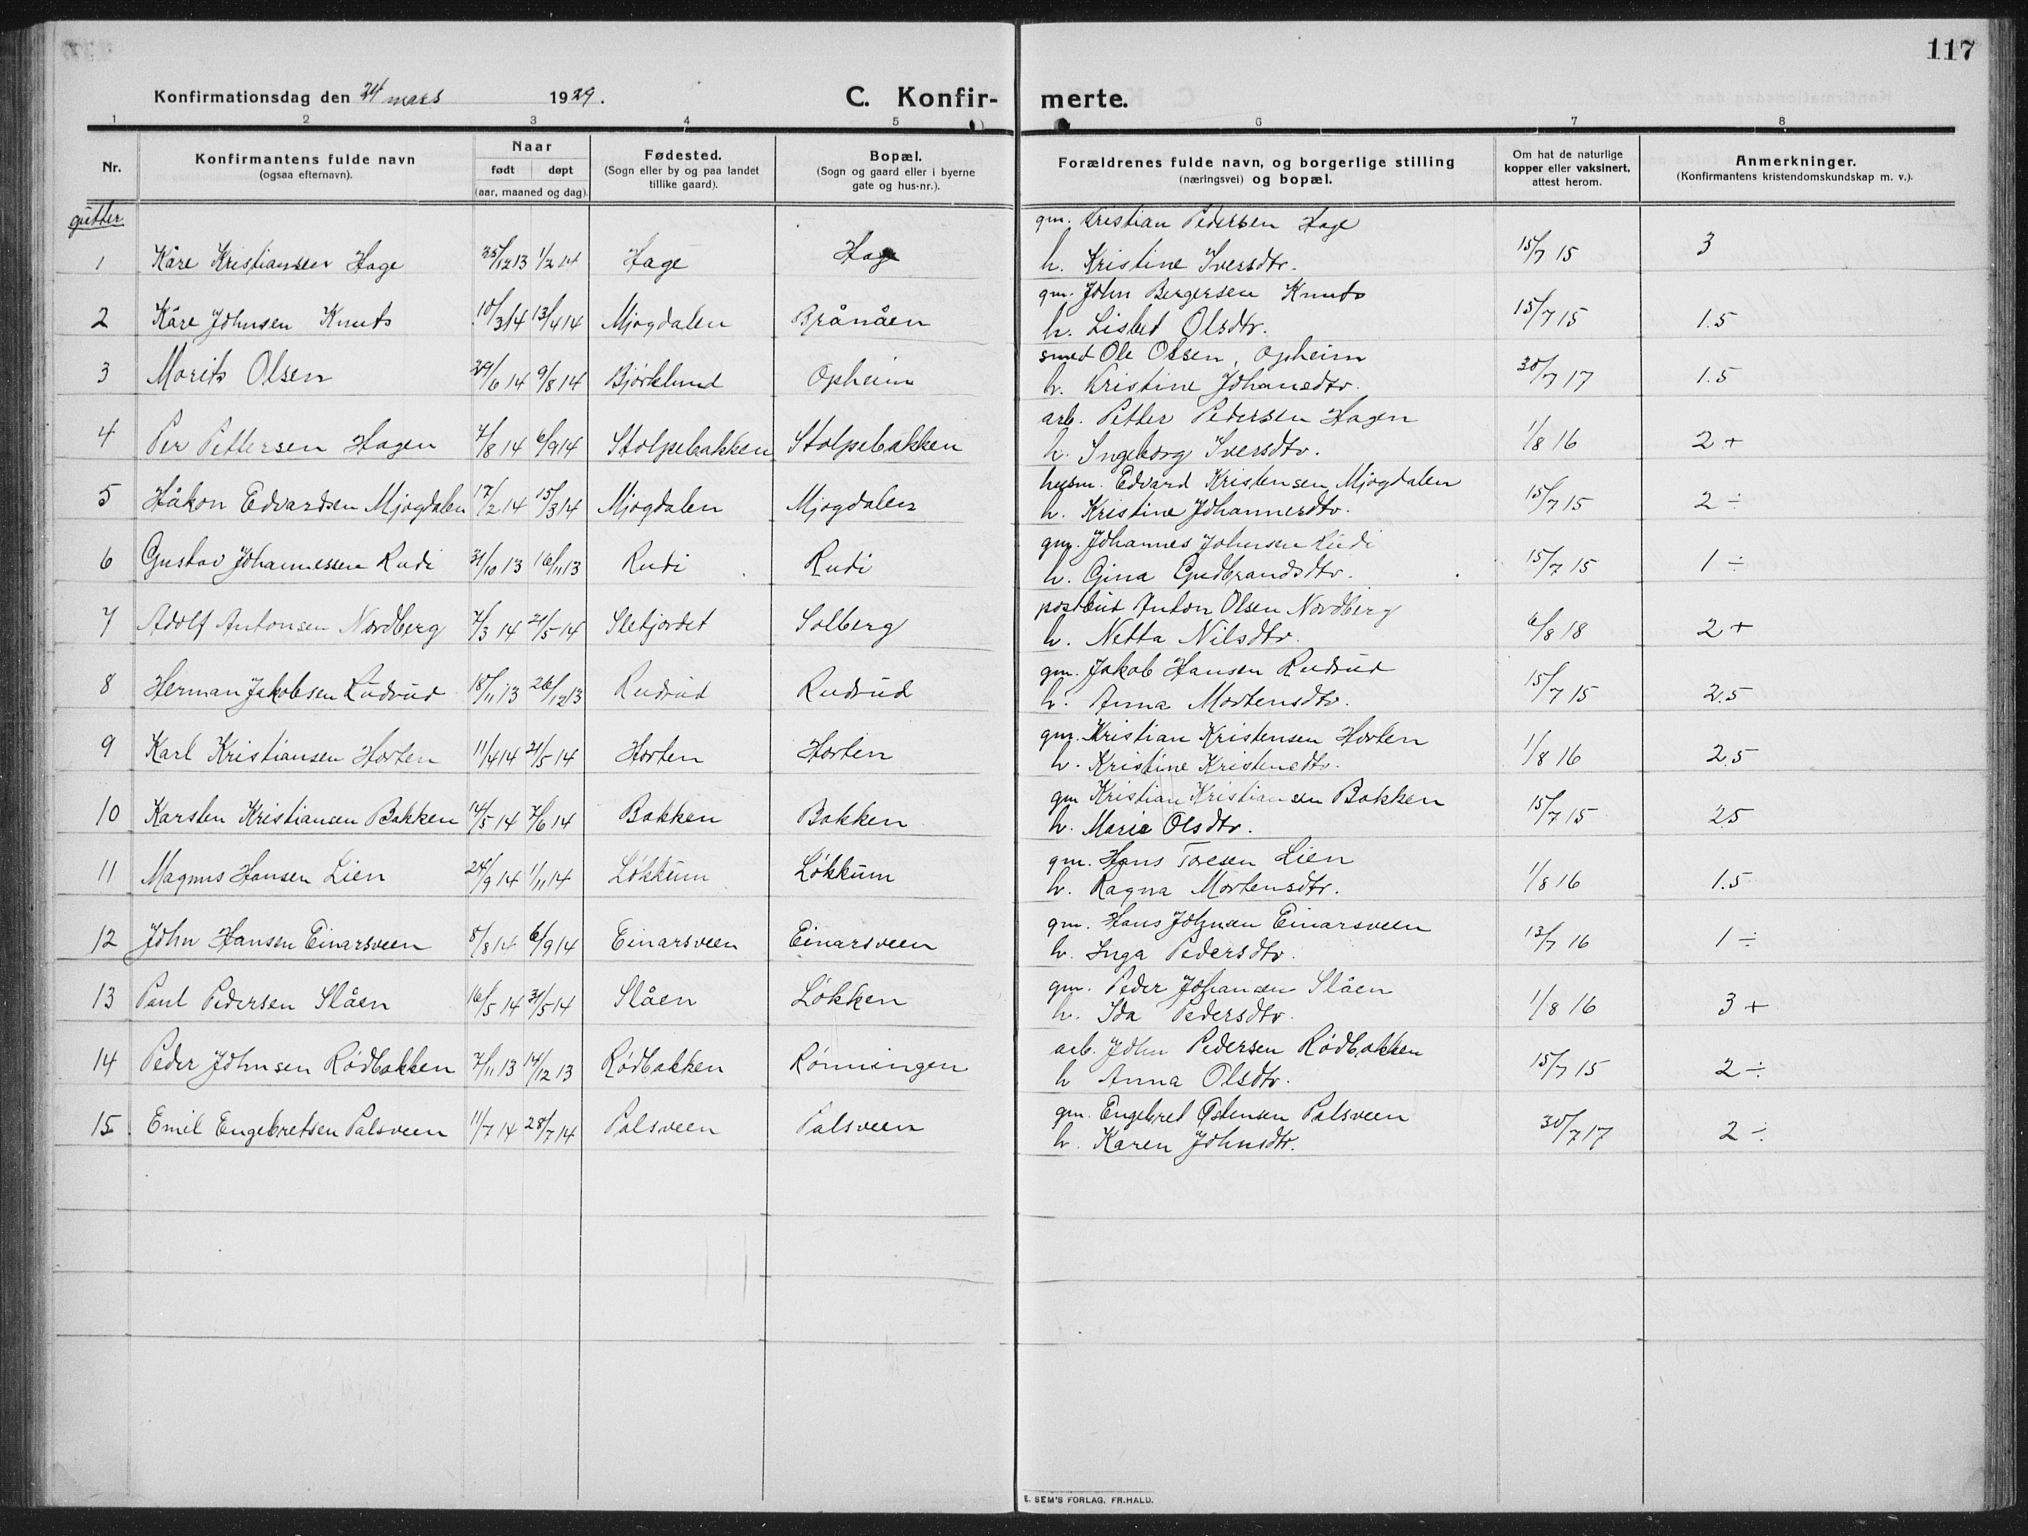 117
Konfirmationsdag den 24 mars 1929. C. Konfirmerte.
1 2 3 4 5 6 7 8
Nr. Konfirmantens fulde navn (ogsaa efternavn). Naar født døpt (aar, maaned og dag). Fødested. (Sogn eller by og paa landet tillike gaard). Bopæl. (Sogn og gaard eller i byerne gate og hus-nr.). Forældrenes fulde navn, og borgerlige stilling (næringsvei) og bopæl. Om hat de naturlige kopper eller vaksinert, attest herom. Anmerkninger. (Konfirmantens kristendomskundskap m. v.).
gutter
1 Kåre Kristiansen Hage 25/12 13 1/2 14 Hage Hage gm. Kristian Pedersen Hage 15/7 15 3
h. Kristine Iversdtr.
2 Kåre Johnsen Knuts 10/3 14 13/4 14 Mjogdalen Brånåen gm. John Bergersen Knuts 15/7 15 1.5
h. Lisbet Olsdtr.
3 Morits Olsen 29/6 14 9/8 14 Bjørklund Opheim smed Ole Olsen, Opheim 30/7 17 1.5
h. Kristine Johansdtr.
4 Per Pettersen Hagen 7/8 14 6/9 14 Stolpebakken Stolpebakken arb. Petter Pedersen Hagen 1/8 16 2 +
h. Ingeborg Iversdtr.
5 Håkon Edvardsen Mjogdalen 17/2 14 15/3 14 Mjogdalen Mjogdalen husm. Edvard Kristensen Mjogdalen 15/7 15 2 ÷
h. Kristine Johannesdtr.
6 Gustav Johannessen Rudi 31/10 13 16/11 13 Rudi Rudi gm. Johannes Johnsen Rudi 15/7 15 1 ÷
h. Gina Gudbrandsdtr.
7 Adolf Antonsen Nordberg 7/3 14 21/5 14 Sletjordet Solberg postbud Anton Olsen Nordberg 6/8 18 2 +
h. Netta Nilsdtr.
8 Herman Jakobsen Rudrud 18/11 13 26/12 13 Rudrud Rudrud gm. Jakob Hansen Rudrud 15/7 15 2.5
h. Anna Mortensdtr.
9 Karl Kristiansen Horten 11/4 14 21/5 14 Horten Horten gm. Kristian Kristensen Horten 1/8 16 2.5
h. Kristine Kristensdtr.
10 Karsten Kristiansen Bakken 14/5 14 7/6 14 Bakken Bakken gm Kristian Kristiansen Bakken 15/7 15 2.5
h. Marie Olsdtr.
11 Magnus Hansen Lien 24/9 14 1/11 14 Løkkum Løkkum gm. Hans Toresen Lien 1/8 16 1.5
h. Ragna Mortensdtr.
12 John Hansen Einarsveen 8/8 14 6/9 14 Einarsveen Einarsveen gm. Hans Johnsen Einarsveen 13/7 16 1 ÷
h. Inga Pedersdtr.
13 Paul Pedersen Slåen 16/5 14 31/5 14 Slåen Løkken gm. Peder Johansen Slåen 1/8 16 3 +
h. Ida Pedersdtr.
14 Peder Johnsen Rødbakken 7/11 13 14/12 13 Rødbakken Rønningen arb. John Pedersen Rødbakken 15/7 15 2 ÷
h Anna Olsdtr.
15. Emil Engebretsen Palsveen 11/7 14 28/7 14 Palsveen Palsveen gm. Engebret Østensen Palsveen 30/7 17 2 ÷
h. Karen Johnsdtr.
E. SEM'S FORLAG, FR.HALD.